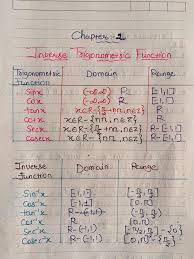 Chapter-2
Inverse Trigonometric Function
Trigonometric Function Domain Range
Sinx (-∞,∞) R [-1,1]
Cosx (-∞,∞) R [-1,1]
tanx x∈R-{π/2+nπ, n∈Z} R
Cotx x∈R-{nπ, n∈Z} R
Secx x∈R-{π/2+nπ, n∈Z} R-(-1,1)
Cosecx x∈R-{nπ, n∈Z} R-(-1,1)
Inverse Function Domain Range
Sin⁻¹x [-1,1] [-π/2, π/2]
Cos⁻¹x [-1,1] [0,π]
tan⁻¹x
Cot⁻¹x R
Sec⁻¹x R-(-1,1)
Cosec⁻¹x R-(-1,1)